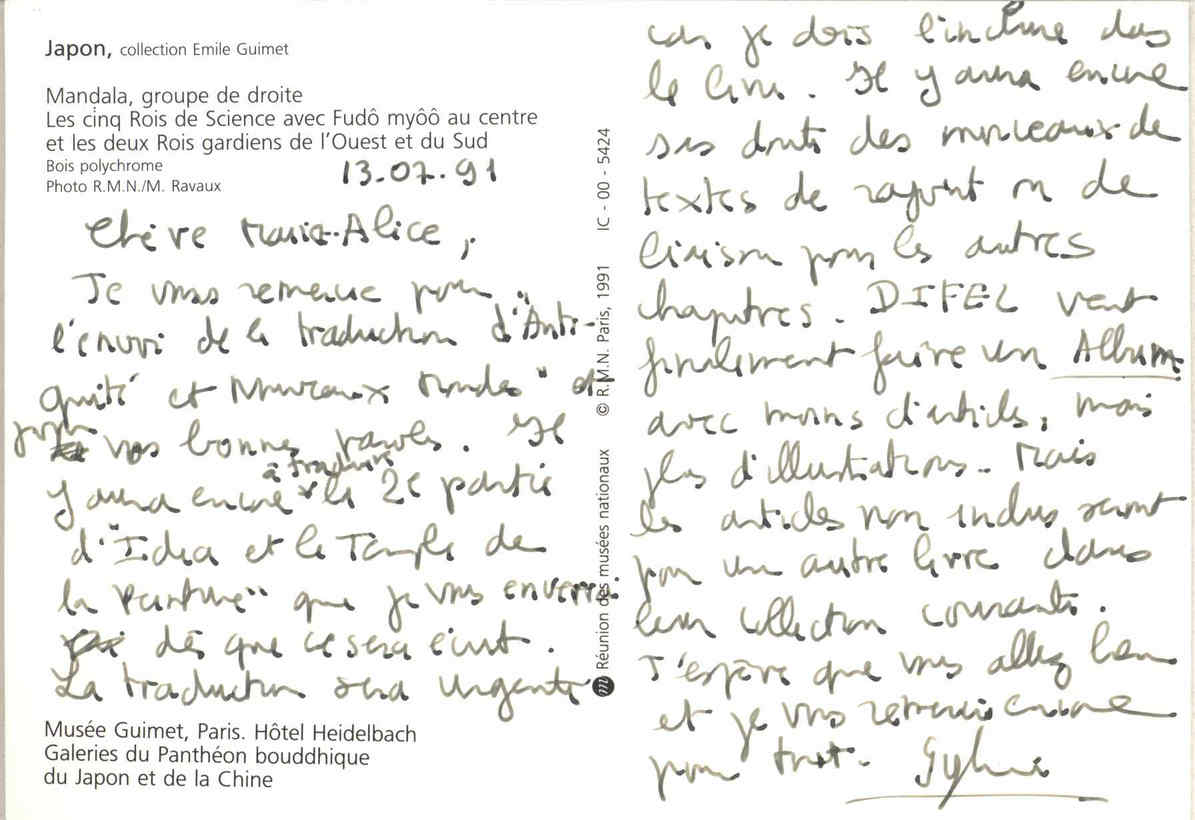 Japon, collection Emile Guimet
Mandala, groupe de droite
Les cinq Rois de Science avec Fudô myôô au centre
et les deux Rois gardiens de l'Ouest et du Sud
Bois polychrome
Photo R.M.N./M. Ravaux
13.07.91
Chère Marie-Alice,
Je vous remercie pour
l'envoi de la traduction d'"Anti-
quité et Nouveaux Mondes" et
pour vos bonnes paroles. Il
y aura encore à traduire la 2e partie
d'"Idea et le Temple de
la Peinture" que je vous enverrai
dès que ce sera écrit.
La traduction sera urgente
Musée Guimet, Paris. Hôtel Heidelbach
Galeries du Panthéon bouddhique
du Japon et de la Chine
Réunion des musées nationaux © R.M.N. Paris, 1991 IC - 00 - 5424
car je dois l'inclure dans
le livre. Il y aura encore
sans doute des morceaux de
textes de rajout ou de
liaison pour les autres
chapitres. DIFEL veut
finalement faire un Album
avec moins d'articles, mais
plus d'illustrations. Mais
les articles non inclus seront
pour un autre livre dans
leur collection courante.
J'espère que vous allez bien
et je vous remercie encore
pour tout.